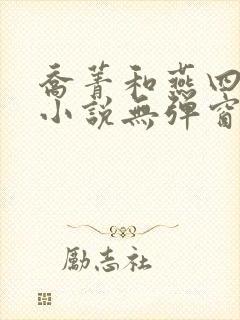 喬菁和燕四
小說無彈窗
勵志社